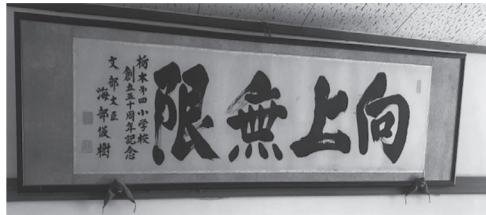 向上無限
栃木第四小学校
創立五十周年記念
文部大臣
海部俊樹